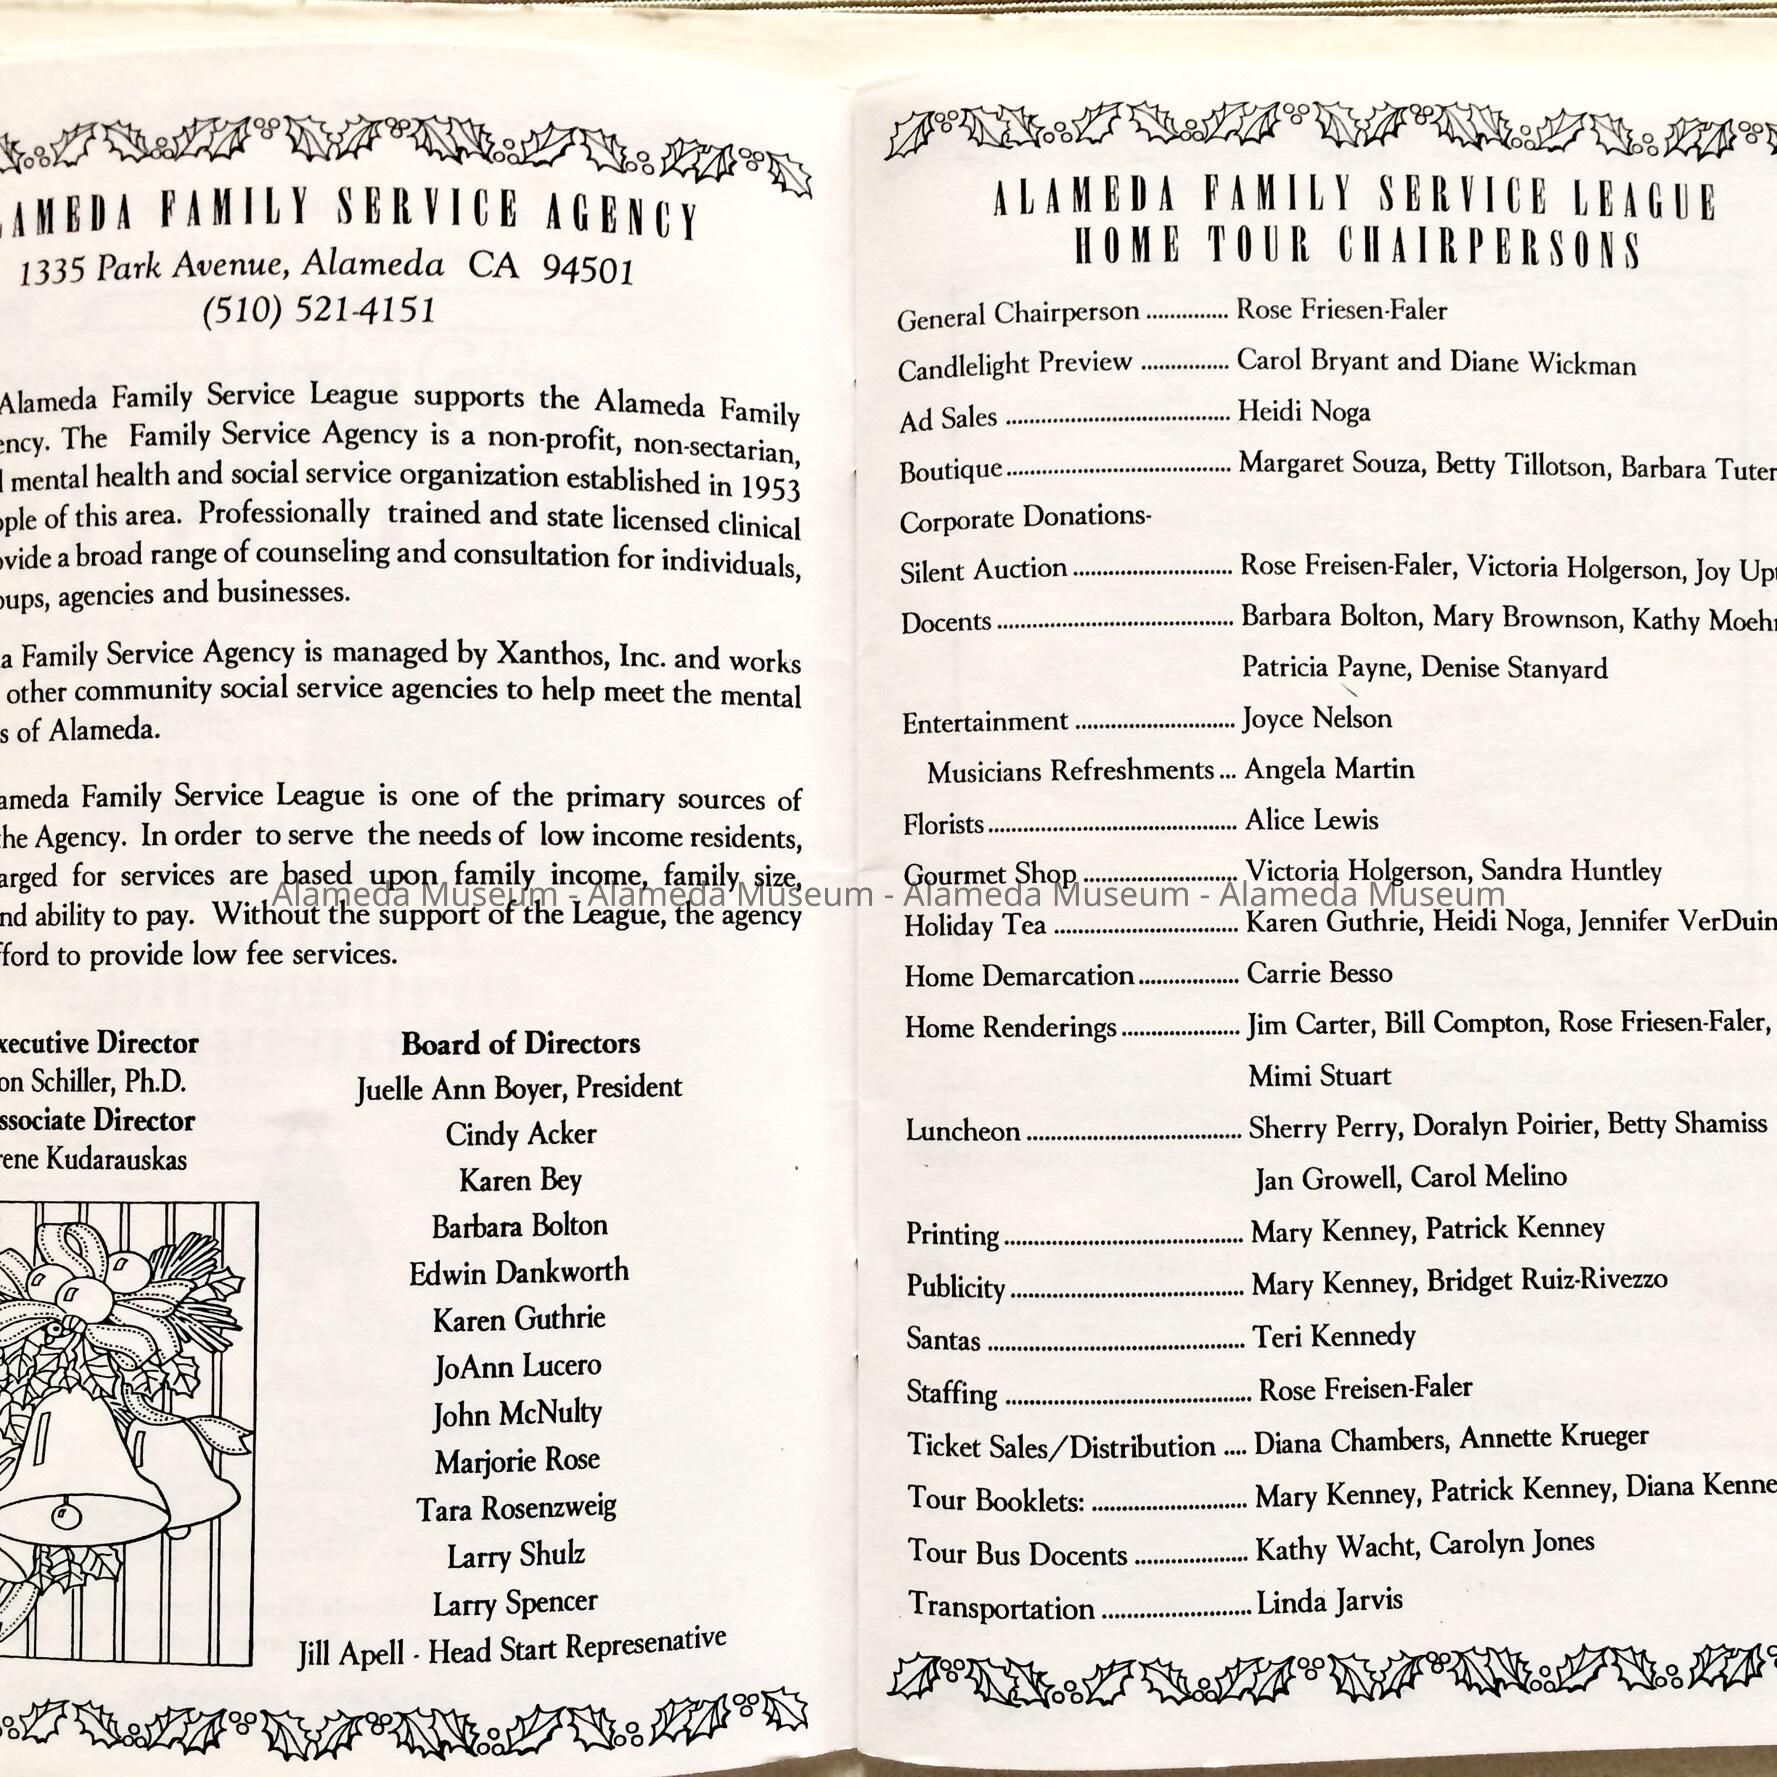 AMEDA FAMILY SERVICE AGENCY
1335 Park Avenue, Alameda CA 94501
(510) 521-4151
Alameda Family Service League supports the Alameda Family
ency. The Family Service Agency is a non-profit, non-sectarian,
mental health and social service organization established in 1953
ople of this area. Professionally trained and state licensed clinical
ovide a broad range of counseling and consultation for individuals,
oups, agencies and businesses.
a Family Service Agency is managed by Xanthos, Inc. and works
other community social service agencies to help meet the mental
s of Alameda.
ameda Family Service League is one of the primary sources of
he Agency. In order to serve the needs of low income residents,
arged for services are based upon family income, family size,
nd ability to pay. Without the support of the League, the agency
fford to provide low fee services.
xecutive Director
on Schiller, Ph.D.
ssociate Director
rene Kudarauskas
Board of Directors
Juelle Ann Boyer, President
Cindy Acker
Karen Bey
Barbara Bolton
Edwin Dankworth
Karen Guthrie
JoAnn Lucero
John McNulty
Marjorie Rose
Tara Rosenzweig
Larry Shulz
Larry Spencer
Jill Apell - Head Start Represenative
ALAMEDA FAMILY SERVICE LEAGUE
HOME TOUR CHAIRPERSONS
General Chairperson .............. Rose Friesen-Faler
Candlelight Preview ............... Carol Bryant and Diane Wickman
Ad Sales ...................................... Heidi Noga
Boutique...................................... Margaret Souza, Betty Tillotson, Barbara Tuter
Corporate Donations-
Silent Auction ........................... Rose Freisen-Faler, Victoria Holgerson, Joy Up
Docents ........................................ Barbara Bolton, Mary Brownson, Kathy Moeh
Patricia Payne, Denise Stanyard
Entertainment ........................... Joyce Nelson
Musicians Refreshments ... Angela Martin
Florists.......................................... Alice Lewis
Gourmet Shop .......................... Victoria Holgerson, Sandra Huntley
Alameda Museum - Alameda Museum - Alameda Museum - Alameda Museum
Holiday Tea ............................... Karen Guthrie, Heidi Noga, Jennifer VerDuin
Home Demarcation................. Carrie Besso
Home Renderings .................... Jim Carter, Bill Compton, Rose Friesen-Faler,
Mimi Stuart
Luncheon .................................... Sherry Perry, Doralyn Poirier, Betty Shamiss
Jan Growell, Carol Melino
Printing ........................................ Mary Kenney, Patrick Kenney
Publicity ....................................... Mary Kenney, Bridget Ruiz-Rivezzo
Santas ........................................... Teri Kennedy
Staffing ......................................... Rose Freisen-Faler
Ticket Sales/Distribution .... Diana Chambers, Annette Krueger
Tour Booklets: .......................... Mary Kenney, Patrick Kenney, Diana Kenne
Tour Bus Docents ................... Kathy Wacht, Carolyn Jones
Transportation ......................... Linda Jarvis